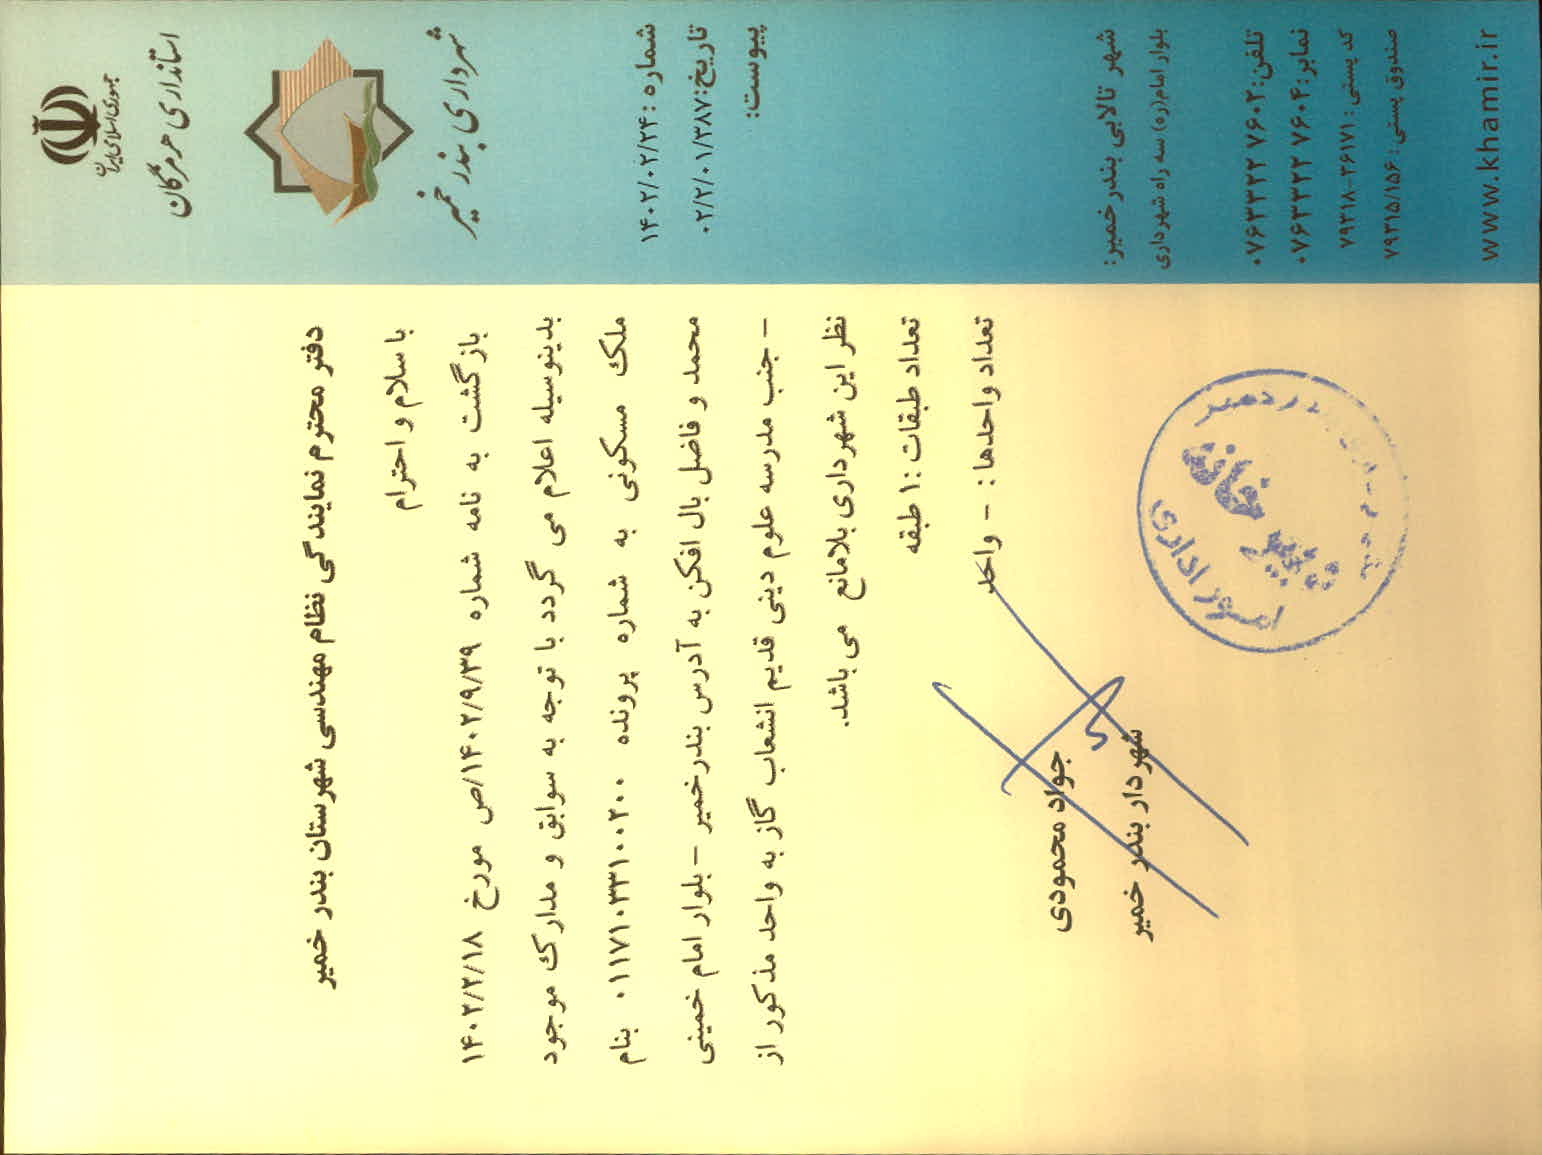 جمهوری اسلامی ایران
استانداری هرمزگان
شهرداری بندر خمیر
شماره :۱۴۰۲/۰۲/۲۴
تاریخ:۰۲/۲/۰۱/۳۸۷
پیوست:
دفتر محترم نمایندگی نظام مهندسی شهرستان بندر خمیر
با سلام و احترام
بازگشت به نامه شماره ۱۴۰۲/۹/۳۹/ص مورخ ۱۴۰۲/۲/۱۸
بدینوسیله اعلام می گردد با توجه به سوابق و مدارک موجود
ملک مسکونی به شماره پرونده ۰۱۱۷۱۰۳۳۱۰۰۲۰۰ بنام
محمد و فاضل بال افکن به آدرس بندرخمیر – بلوار امام خمینی
– جنب مدرسه علوم دینی قدیم انشعاب گاز به واحد مذکور از
نظر این شهرداری بلامانع می باشد.
تعداد طبقات :۱ طبقه
تعداد واحدها : – واحد
جواد محمودی
شهردار بندر خمیر
دبیرخانه
امور اداری
شهر تالابی بندرخمیر:
بلوار امام(ره) سه راه شهرداری
تلفن:۰۷۶۳۳۲۲۷۶۰۲
نمابر:۰۷۶۳۳۲۳۷۶۰۴
کد پستی : ۷۹۳۱۸-۳۶۱۷۱
صندوق پستی: ۷۹۳۱۵/۱۵۶
www.khamir.ir